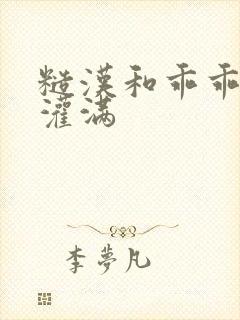 糙漢和乖乖
灌满
李夢凡